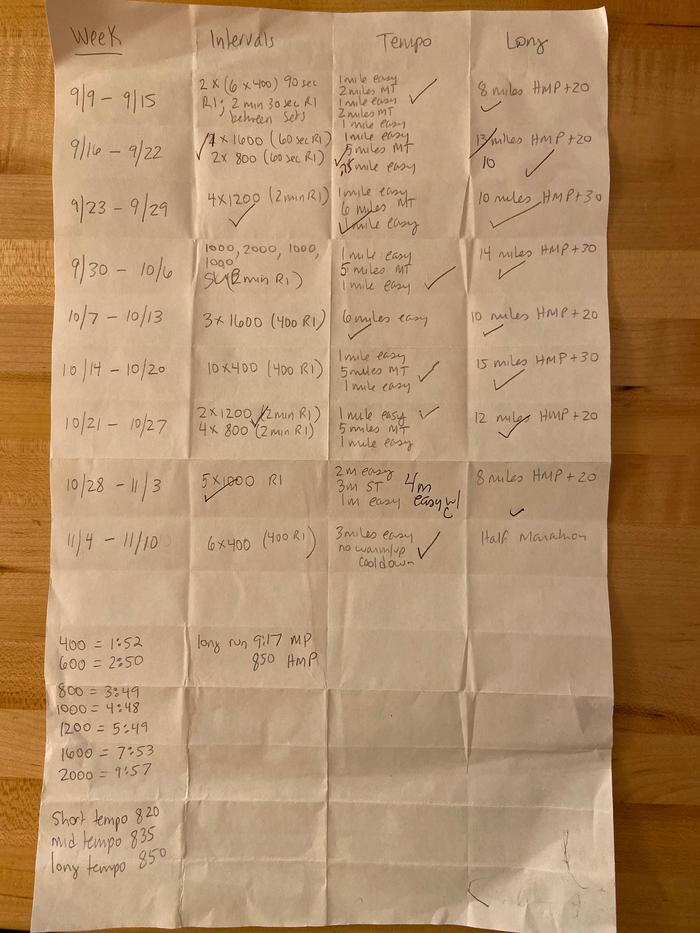 Week Intervals Tempo Long
9/9 - 9/15
2 x (6 x 400) 90 sec
RI; 2 min 30 sec RI
between sets
1 mile easy
2 miles MT
1 mile easy
2 miles MT
1 mile easy
8 miles HMP +20
9/16 - 9/22
1 x 1600 (60 sec RI)
2 x 800 (60 sec RI)
1 mile easy
5 miles MT
mile easy
13 miles HMP +20
10
9/23 - 9/29
4 x 1200 (2 min RI)
1 mile easy
6 miles MT
1 mile easy
10 miles HMP +30
9/30 - 10/6
1000, 2000, 1000,
1000
(2 min RI)
1 mile easy
5 miles MT
1 mile easy
14 miles HMP +30
10/7 - 10/13
3 x 1600 (400 RI)
6 miles easy
10 miles HMP +20
10/14 - 10/20
10 x 400 (400 RI)
1 mile easy
5 miles MT
1 mile easy
15 miles HMP +30
10/21 - 10/27
2 x 1200 (2 min RI)
4 x 800 (2 min RI)
1 mile easy
5 miles MT
1 mile easy
12 miles HMP +20
10/28 - 11/3
5 x 1000 RI
2m easy
3m ST
1m easy
4m
easy w/
C
8 miles HMP +20
11/4 - 11/10
6 x 400 (400 RI)
3 miles easy
no warm/up
cooldown
Half Marathon
400 = 1:52
600 = 2:50
800 = 3:49
1000 = 4:48
1200 = 5:49
1600 = 7:53
2000 = 9:57
long run 9:17 MP
850 HMP
Short tempo 820
mid tempo 835
long tempo 850